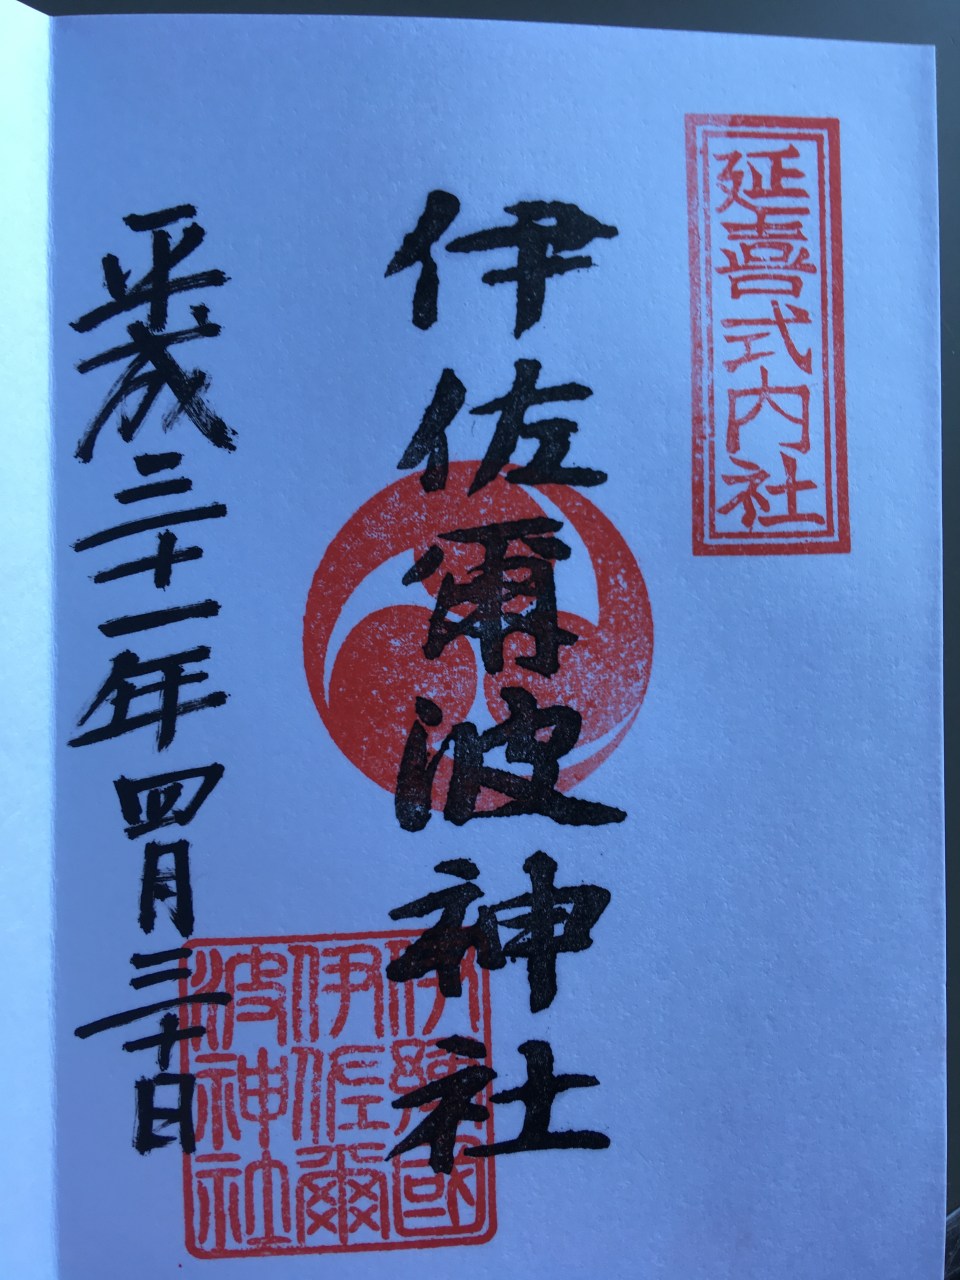 延喜式内社
伊佐爾波神社
平成三十一年四月三十日
伊豫國
伊佐爾
波神社